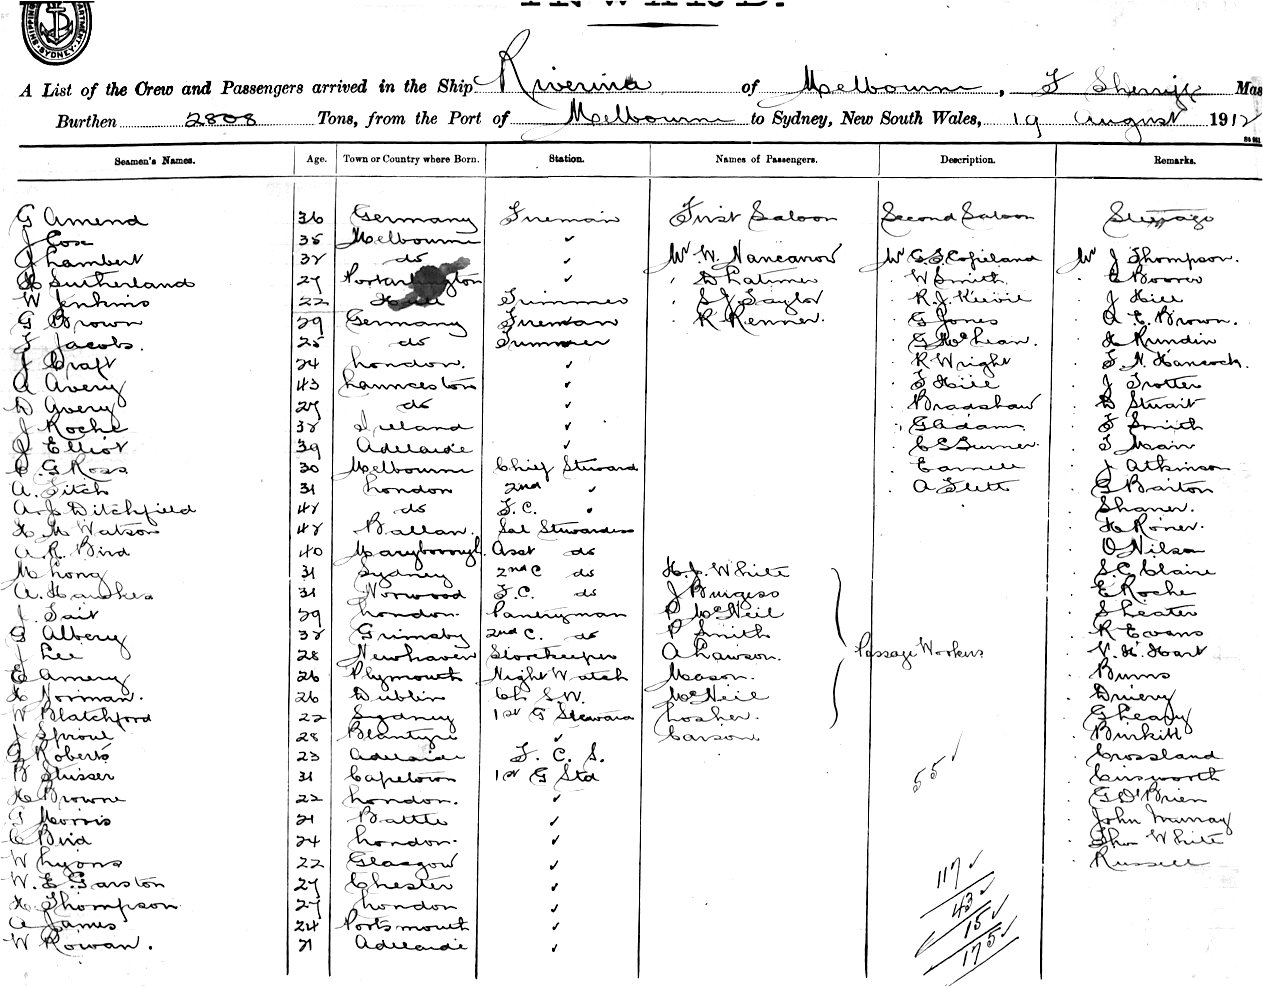 SHIPPING DEPARTMENT SYDNEY
INWARD.
A List of the Crew and Passengers arrived in the Ship Riverina of Melbourne, F Sherriff Mas
Burthen 2808 Tons, from the Port of Melbourne to Sydney, New South Wales, 19 August 1912
Seamen's Names. Age. Town or Country where Born. Station. Names of Passengers. Description. Remarks.
G Amend 36 Germany Fireman First Saloon Second Saloon Steerage
J Cox 35 Melbourne ✓
J Lambert 38 do ✓ Mr W. Nancarrow Mr C.S. Copeland Mr J Thompson.
H Sutherland 27 Portarlington ✓ " D Latimer " W Smith
W Jenkins 22 Trimmer " S J Taylor " R.J. " J Hill
G Brown 29 Germany Fireman " R Renner. " G Jones " A E. Brown.
F Jacobs. 25 do Trimmer " G McLean. " H Rundin
J Craft 24 London. ✓ " R Wright " F. N. Hancock.
A Avery 43 Launceston ✓ " F Hill " J Trotter
D Avery 27 do ✓ " Bradshaw " D Stuart
J Roche 38 Ireland ✓ " G Adams " F Smith
J Elliot 39 Adelaide ✓ " C S Turner. " J Main
C. G Ross 30 Melbourne Chief Steward " " J Atkinson
A. Fitch 31 London 2nd ✓ " A Flett " G Barton
A. J. Ditchfield 48 do F.C. ✓ " Shaner.
H M Watson 48 Ballan. Sal Stewardess " H Roner.
A. R. Bird 40 Maryborough. Asst do " O Nilson
M Long 31 Sydney 2nd C do H. J. White " S C Claire
A. Hawkes 31 Norwood F.C. do J Burgess " E. Roche
J. Tait 29 London. Pantryman P McNeil " S Leater
G Albery 38 Grimsby 2nd C. do P Smith " R Evans
J Lee 28 Newhaven Storekeeper A Lawson. Passage Workers " V. H. Hart
E Amery 26 Plymouth Night Watch Mason. " Burns
H Norman. 26 Dublin Ch S.W. McNeil " Drury
W Blatchford 22 Sydney 1st G Steward Losher. " G Leary
J Sproul 28 Blantyre ✓ Carson " Burkitt
G Roberts 23 Adelaide F. C. S. " Crossland
B Slisser 31 Capetown 1st G Std 55 ✓ " Ainsworth
H Browne 22 London. ✓ " G O'Brien
T Morris 21 Battle ✓ " John Murray
C Bird 24 London. ✓ " Thos White
W Lyons 22 Glasgow ✓ " Russell
W. E. Garston 27 Chester ✓ 117 ✓
H. Thompson 27 London ✓ 43 ✓
A James 24 Portsmouth ✓ 15 ✓
W Rowan. 21 Adelaide ✓ 175 ✓